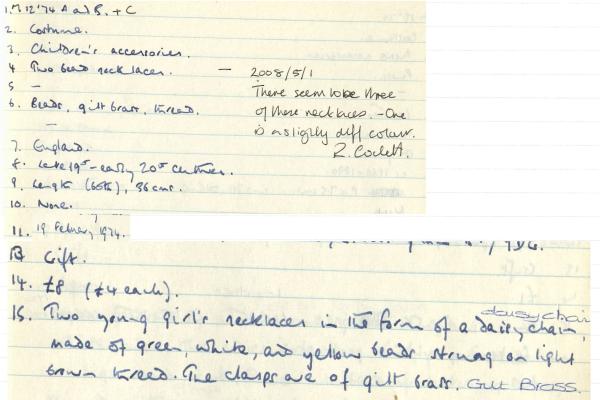 1. M 12'74 A and B. + C
2. Costume.
3. Children's accessories.
4 Two bead necklaces. — 2008/5/1
5 — There seem to be three
6. Beads, gilt brass, thread. of these necklaces. - One
— is a slightly diff colour.
7. England. R.
8. Late 19th - early 20th centuries.
9. Length (both), 36 cms.
10. None.
11. 19 February, 1974.
13 Gift.
14. £8 (£4 each).
daisychain
15. Two young girl's necklaces in the form of a daisy chain,
made of green, white, and yellow beads strung on light
brown thread. The clasps are of gilt brass. Gilt Brass.